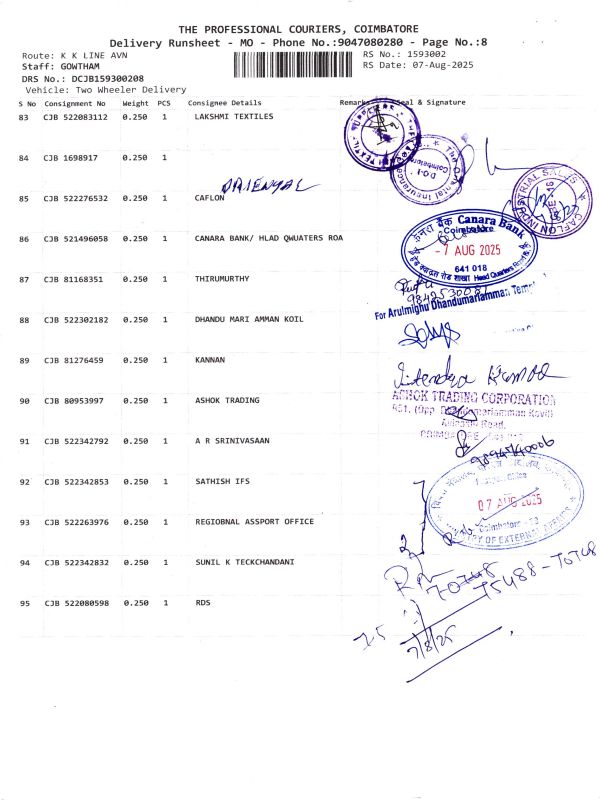 THE PROFESSIONAL COURIERS, COIMBATORE
Delivery Runsheet - MO - Phone No.:9047080280 - Page No.:8
Route: K K LINE AVN
RS No.: 1593002
Staff: GOWTHAM
RS Date: 07-Aug-2025
DRS No.: DCJB159300208
Vehicle: Two Wheeler Delivery
S No Consignment No Weight PCS Consignee Details Remarks Seal & Signature
83 CJB 522083112 0.250 1 LAKSHMI TEXTILES
84 CJB 1698917 0.250 1
D.O-1
Coimbatore
85 CJB 522276532 0.250 1 CAFLON
CAFLON INDUSTRIAL SALES
86 CJB 521496058 0.250 1 CANARA BANK/ HLAD QWUATERS ROA
Canara Bank
Coimbatore
- 7 AUG 2025
641 018
87 CJB 81168351 0.250 1 THIRUMURTHY
For Arulmighu Dhandumariamman
88 CJB 522302182 0.250 1 DHANDU MARI AMMAN KOIL
89 CJB 81276459 0.250 1 KANNAN
90 CJB 80953997 0.250 1 ASHOK TRADING
ASHOK TRADING CORPORATION
91 CJB 522342792 0.250 1 A R SRINIVASAAN
92 CJB 522342853 0.250 1 SATHISH IFS
07 AUG 2025
93 CJB 522263976 0.250 1 REGIOBNAL ASSPORT OFFICE
94 CJB 522342832 0.250 1 SUNIL K TECKCHANDANI
70748
75488 - 70748
95 CJB 522080598 0.250 1 RDS
7/8/25